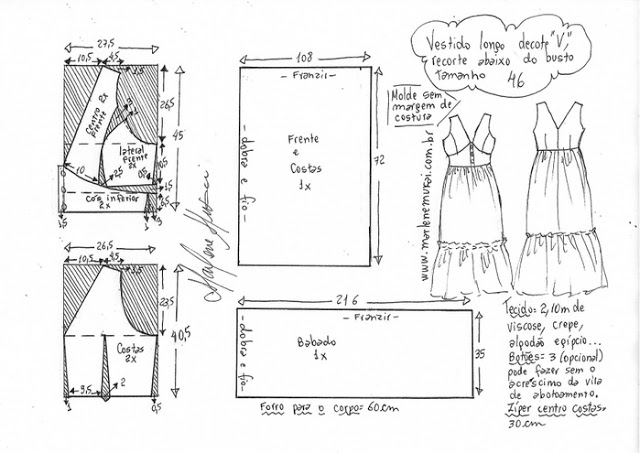 Vestido longo decote "V",
recorte abaixo do busto
Tamanho 46
Molde sem
margem de
costura
www.marlenemukai.com.br
27,5
10,5
4,5
1,5
26,5
45
Centro frente 2x
lateral
frente
2x
10
2,5
0,5
10,5
1,5
cos inferior
2x
1,5
1
3
108
- Franzir -
Frente
e
Costas
1x
- dobra e fio -
72
26,5
10,5
4,5
1,5
23,5
40,5
Costas
2x
9,5
2
1
0,5
216
Franzir -
Babado
1x
- dobra e fio -
35
Forro para o corpo= 60cm
Tecido= 2,10m de
viscose, crepe,
algodão egípcio...
Botões= 3 (opcional)
pode fazer sem o
acréscimo da vita
de abotoamento.
Zíper centro costas=
30cm